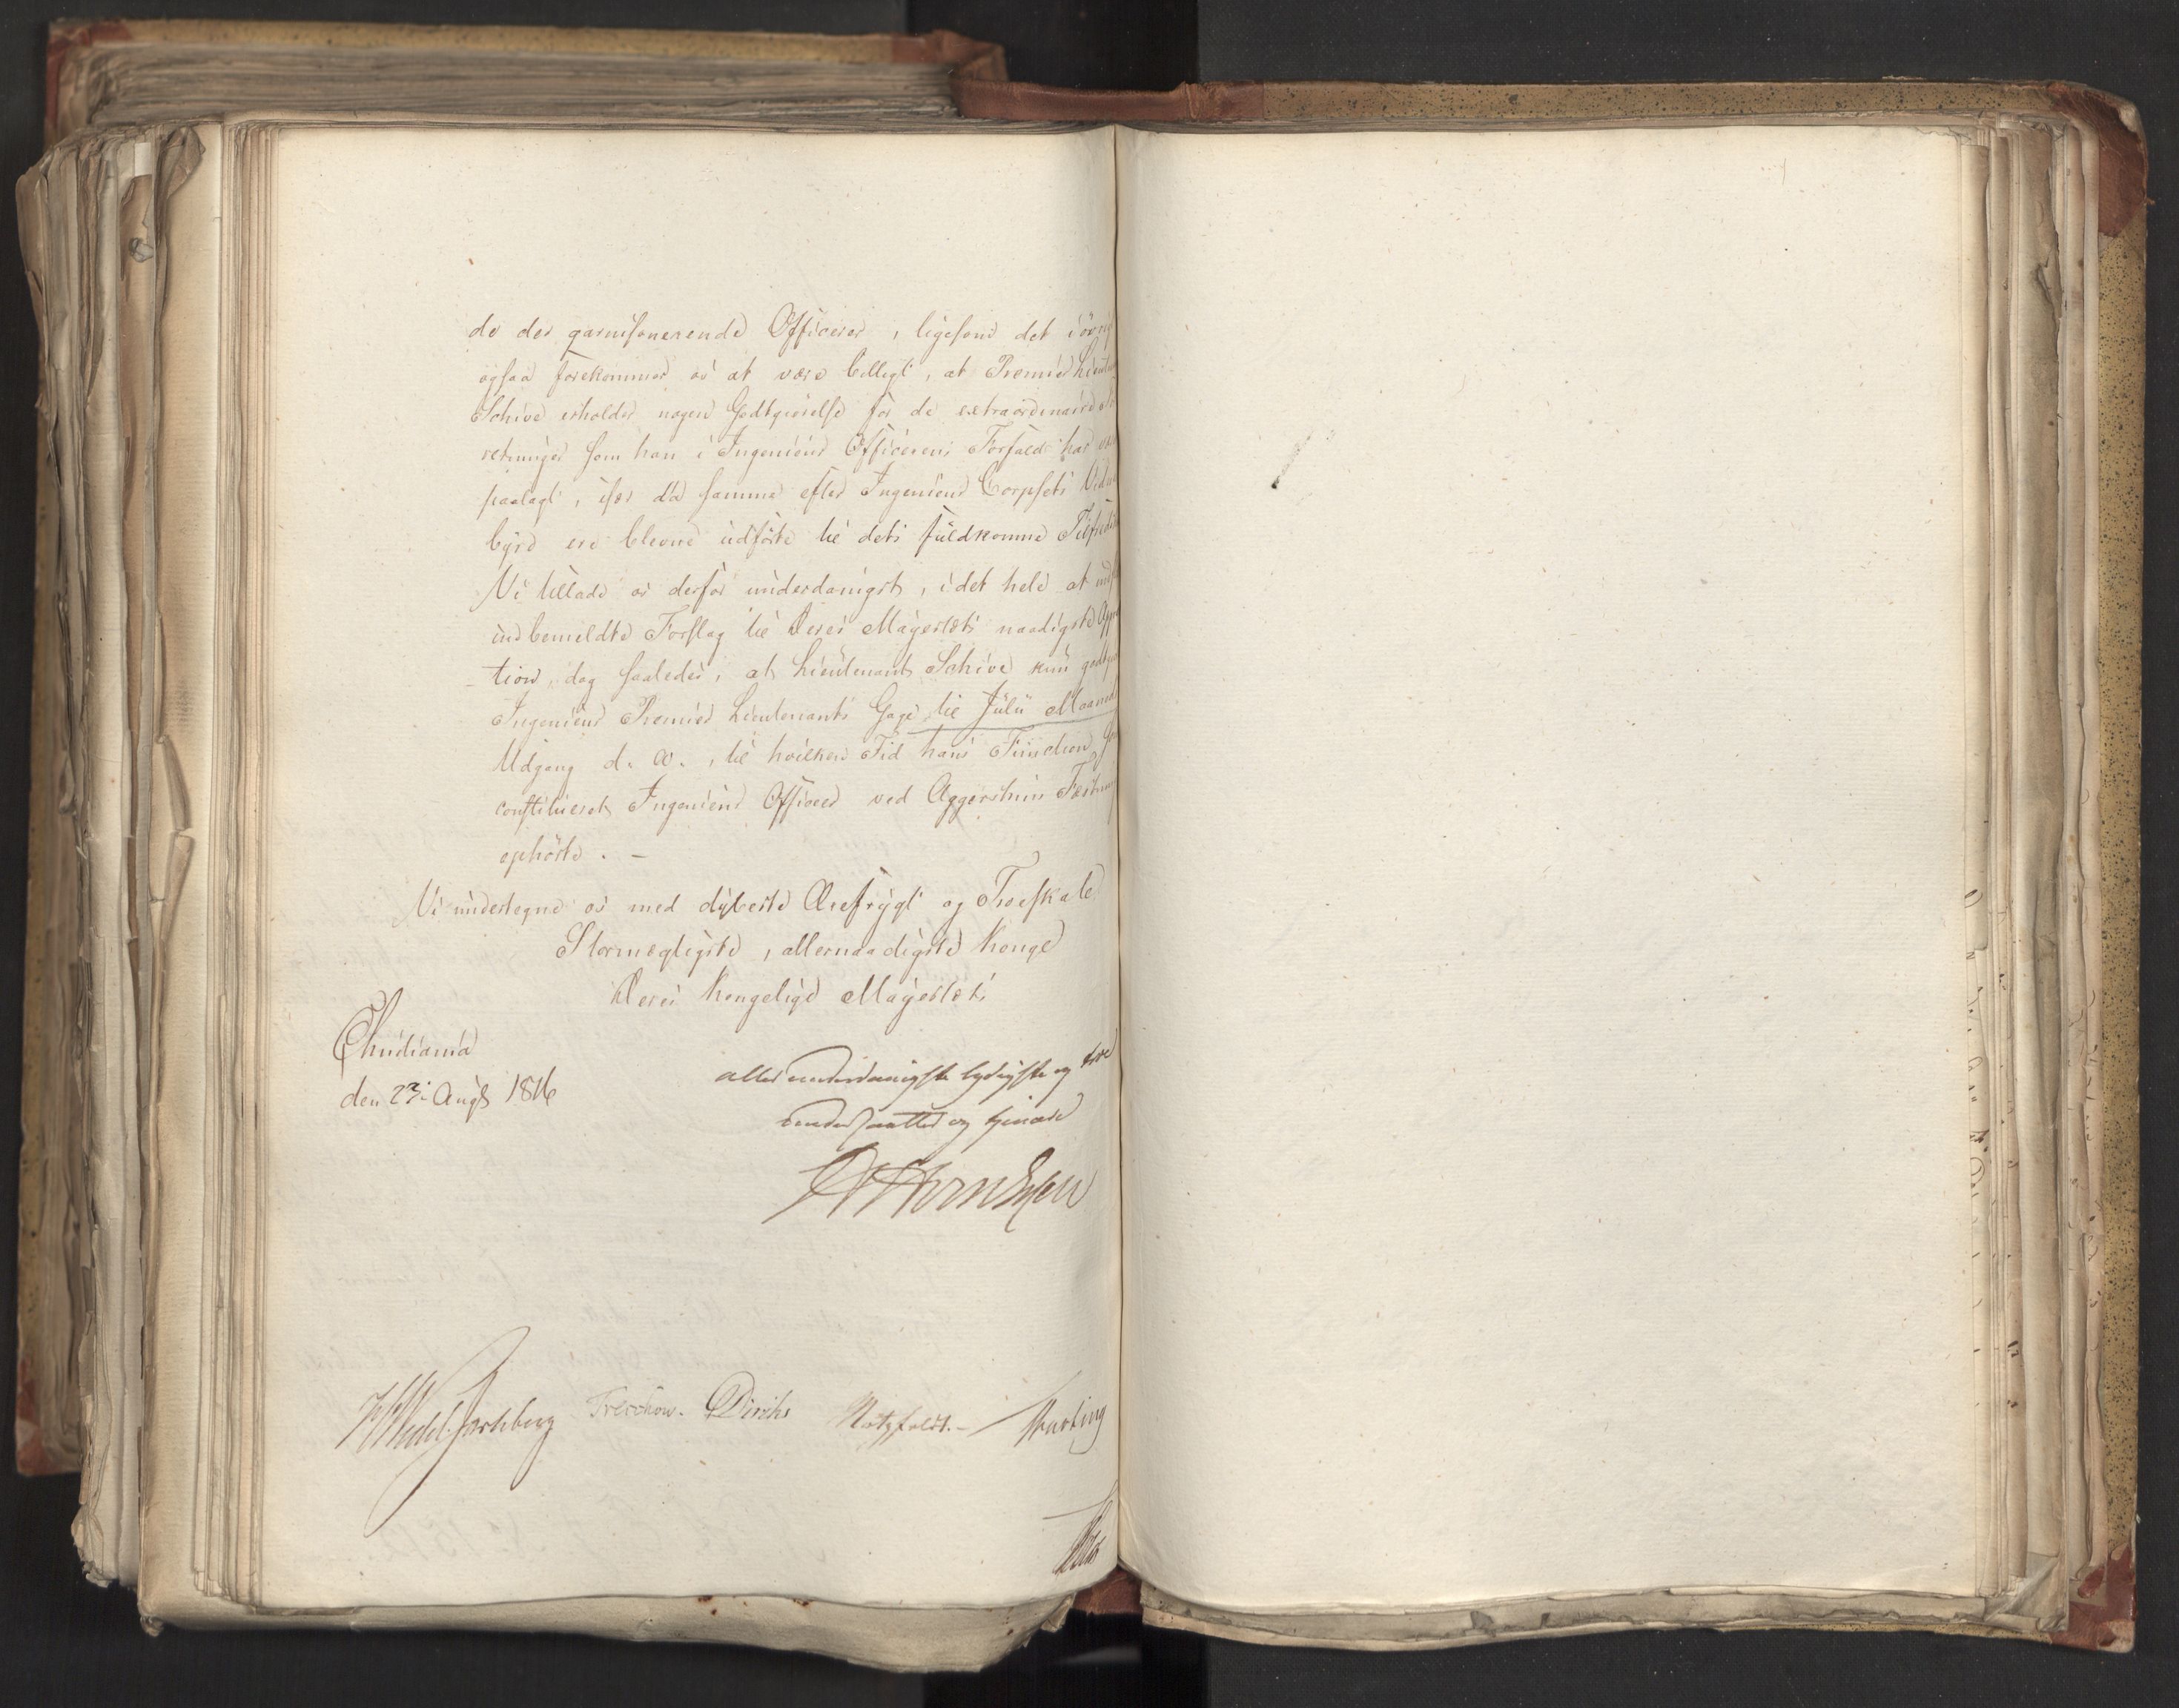 de der garnisonerende Officerer, ligesom det i øvrig
ogsaa forekommer os at være billigt, at Premier Lieut
Schive erholder nogen Godtgiørelse for de extraordinaire
retninger som han i Ingenieur Officerens Forfald har
paalagt, især da samme efter Ingenieur Corpsets
byrd ere blevne udførte til dets fuldkomne Tilfreds
Vi tillade os derfor underdanigst, i det hele at
indbemeldte Forslag til Deres Majestæts naadigste App
tion, dog saaledes, at Lieutenant Schive kun godtg
Ingenieur Premier Lieutenants Gage til Julii Maaneds
Udgang d. A., til hvilken Tid hans Function
constitueret Ingenieur Officer ved Aggershuus Fæstning
ophørte. -
Vi undertegne os med dybeste Ærefrygt og Troeskab
Stormægtigste, allernaadigste Konge
Deres Kongelige Majestæts
Christiania
den 23. Augt 1816
allerunderdanigste lydigste og troe
undersaatter og tjenere
Wedel Jarlsberg Treschow. Diriks Motzfeldt. -